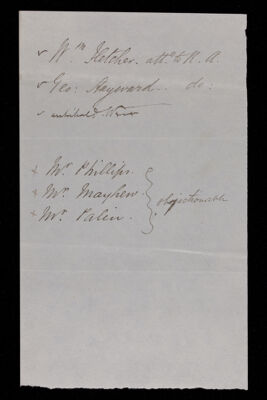 ✓ Wm Fletcher. attd to R. A.
✓ Geo: Hayward. do:
✓ archibald
x Mr Phillips.
x Mr Mayhew. objectionable
x Mr Palin.